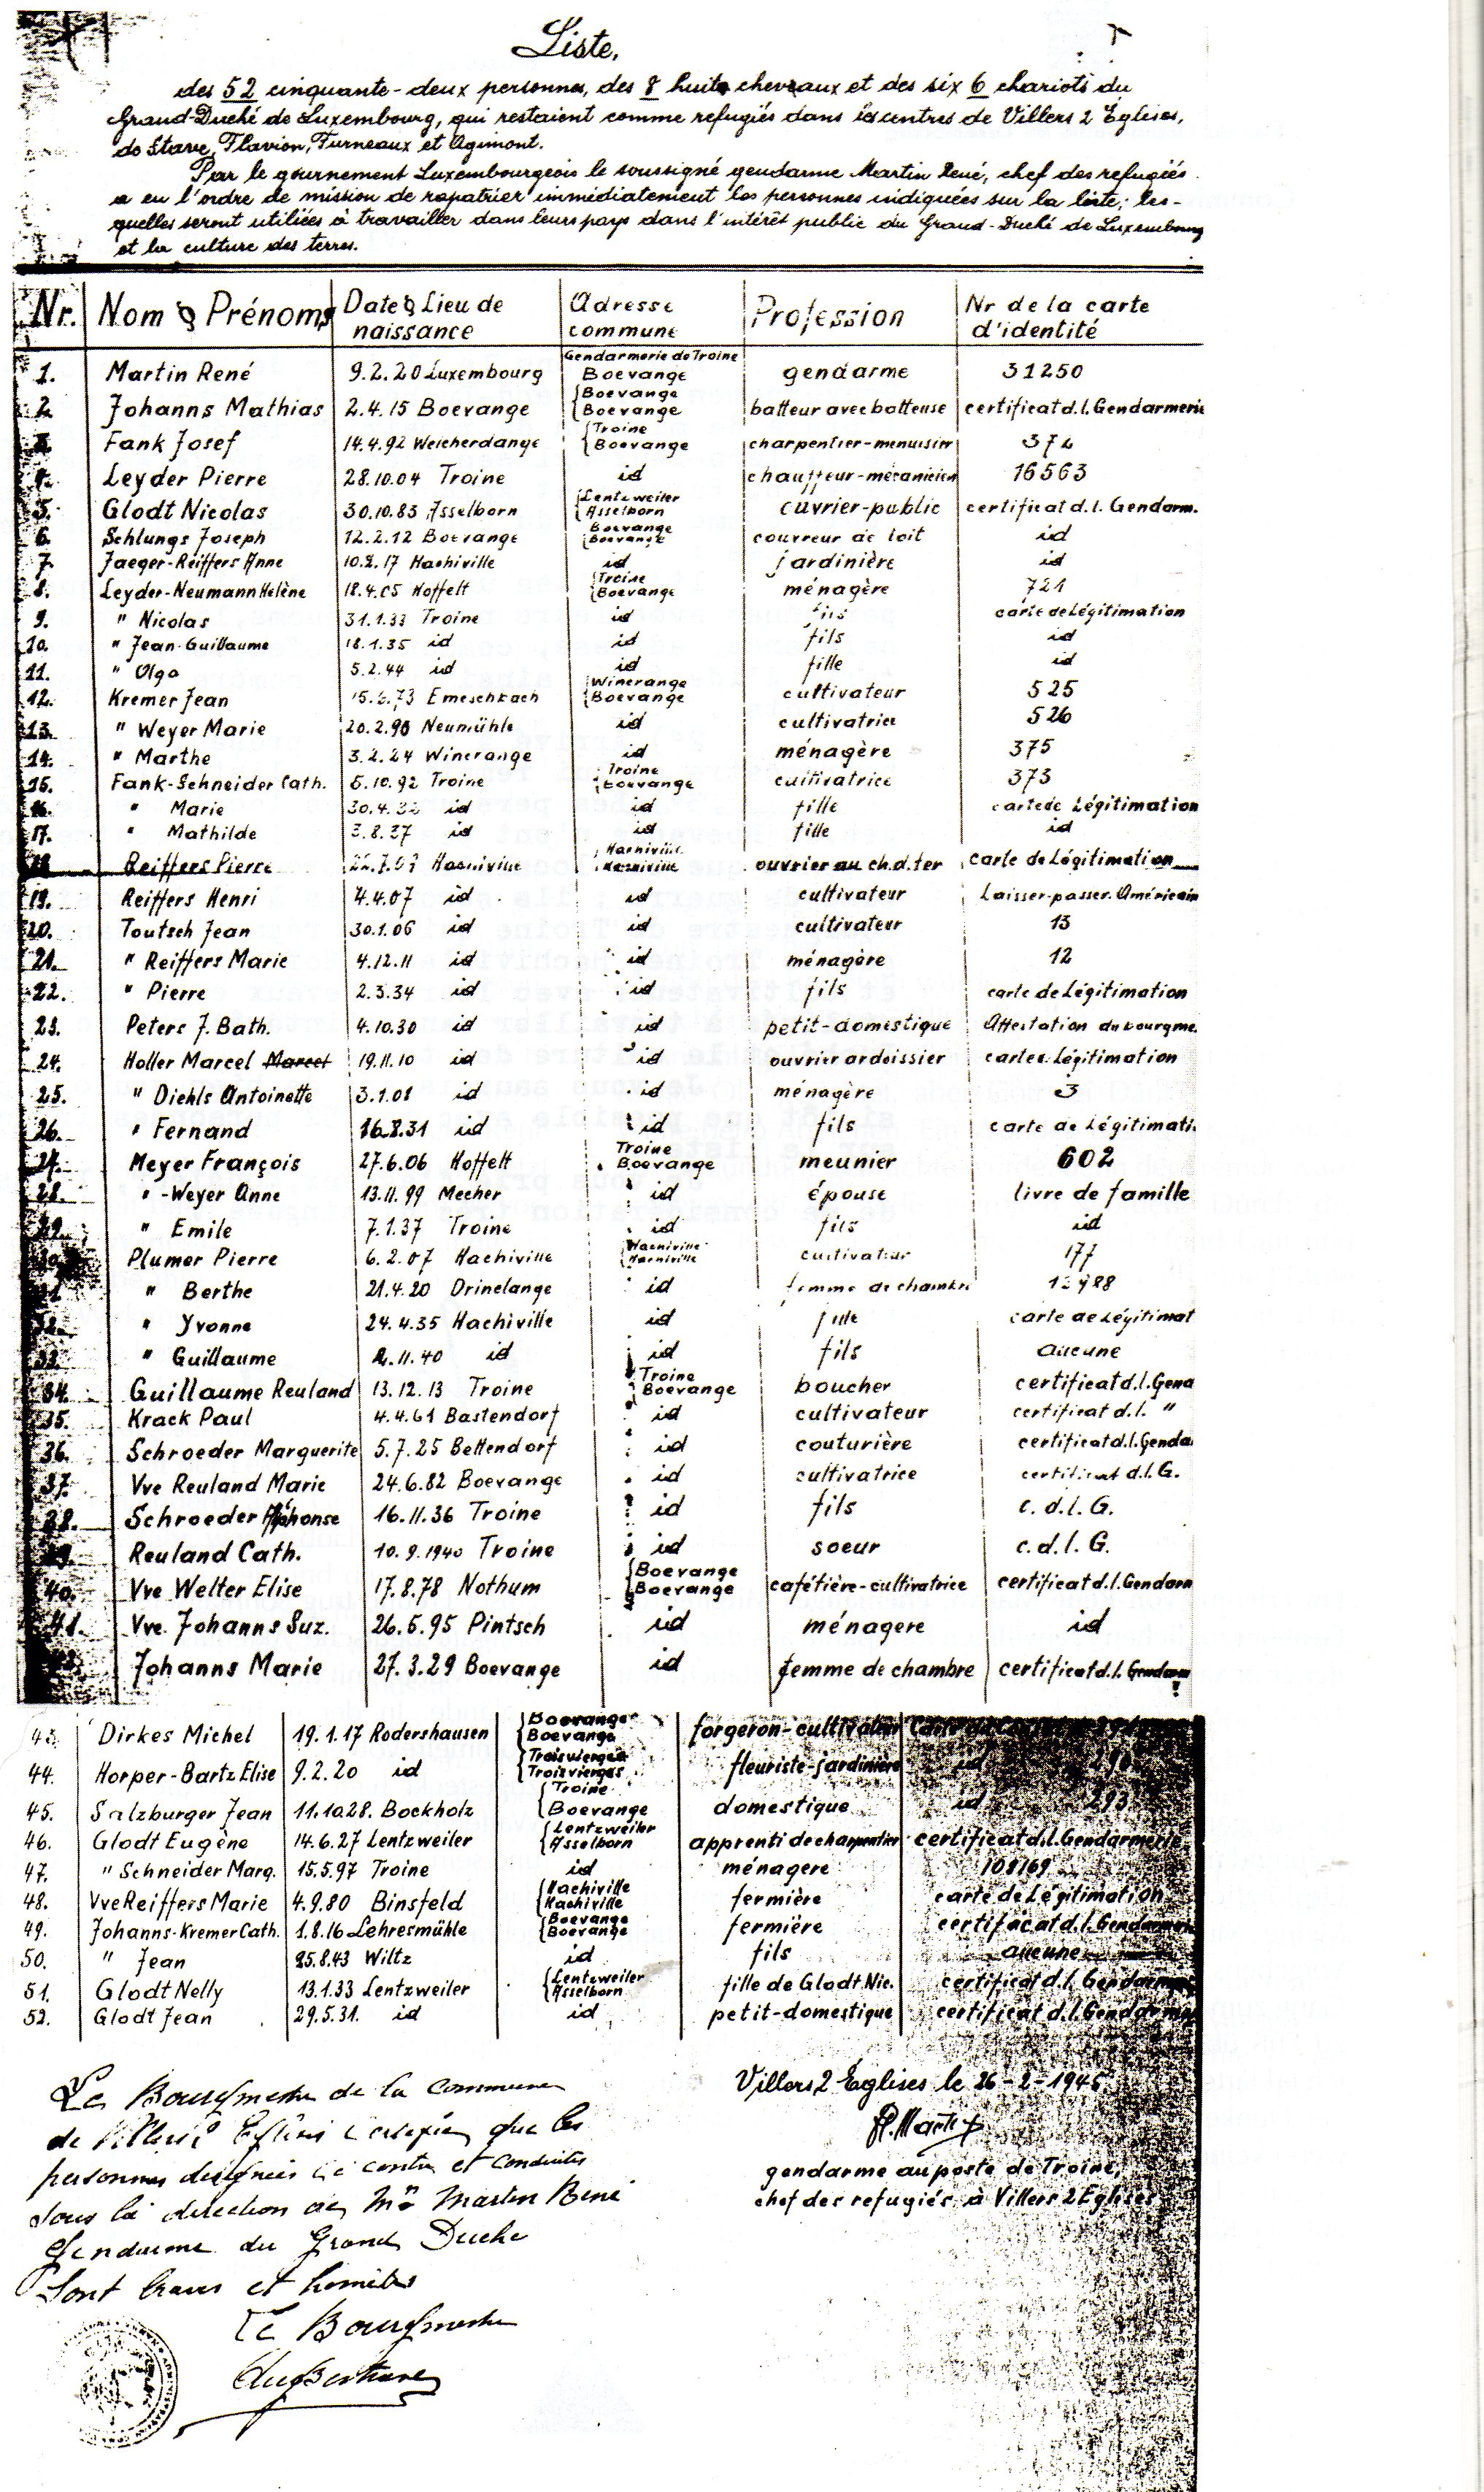 Liste,
des 52 cinquante-deux personnes, des 8 huit chevaux et des six 6 chariots du
Grand-Duché de Luxembourg, qui restaient comme refugiés dans les centres de Villers 2 Eglises,
de Stave, Flavion, Furneaux et Agimont.
Par le gournement Luxembourgeois le soussigné gendarme Martin René, chef des refugiés
a eu l'ordre de mission de rapatrier immédiatement les personnes indiquées sur la liste; les-
quelles seront utilisées à travailler dans leurs pays dans l'intérêt public du Grand-Duché de Luxembourg
et la culture des terres.
Nr. Nom & Prénoms Date & Lieu de naissance Adresse commune Profession Nr de la carte d'identité
1. Martin René 9.2.20 Luxembourg Gendarmerie de Troine Boevange gendarme 31250
2. Johanns Mathias 2.4.15 Boevange Boevange Boevange batteur avec batteuse certificat d.l. Gendarmerie
3. Fank Josef 14.4.92 Weicherdange Troine Boevange charpentier-menuisier 372
4. Leyder Pierre 28.10.04 Troine id chauffeur-mécanicien 16563
5. Glodt Nicolas 30.10.83 Asselborn Lentzweiler Asselborn ouvrier-public certificat d.l. Gendarm.
6. Schlungs Joseph 12.2.12 Boevange Boevange Boevange couvreur de toit id
7. Jaeger-Reiffers Anne 10.2.17 Hachiville id jardinière id
8. Leyder-Neumann Helène 18.4.05 Hoffelt Troine Boevange ménagère 721
9. " Nicolas 31.1.33 Troine id fils carte de Légitimation
10. " Jean-Guillaume 18.1.35 id id fils id
11. " Olga 5.2.44 id id fille id
12. Kremer Jean 73 Emeschbach Wincrange Boevange cultivateur 525
13. " Weyer Marie 20.2.90 Neumühle id cultivatrice 526
14. " Marthe 3.2.24 Wincrange id ménagère 375
15. Fank-Schneider Cath. 5.10.92 Troine Troine Boevange cultivatrice 373
16. " Marie 30.4. id id fille carte de Légitimation
17. " Mathilde 3.8.37 id id fille id
18 Reiffers Pierre Hachiville Hachiville Hachiville ouvrier au ch.d.fer carte de Légitimation
19. Reiffers Henri 4.4.07 id id cultivateur Laisser-passer. Américain
20. Toutsch Jean 30.1.06 id id cultivateur 13
21. " Reiffers Marie 4.12.11 id id ménagère 12
22. " Pierre 2.3.34 id id fils carte de Légitimation
23. Peters J. Bath. 4.10.30 id id petit-domestique Attestation du bourgme.
24. Holler Marcel Marcel 19.11.10 id id ouvrier ardoissier carte Légitimation
25. " Diehls Antoinette 3.1.08 id id ménagère 3
26. " Fernand 16.8.31 id id fils carte de Légitimati.
27. Meyer François 27.6.06 Hoffelt Troine Boevange meunier 602
28. " -Weyer Anne 13.11.99 Mecher id épouse livre de famille
29. " Emile 7.1.37 Troine id fils id
30. Plumer Pierre 6.2.07 Hachiville Hachiville Hachiville cultivateur 177
31 " Berthe 21.4.20 Drinelange id femme de chambre
32. " Yvonne 24.4.35 Hachiville id fille carte de Légitimat
33. " Guillaume 2.11.40 id id fils aucune
34. Guillaume Reuland 13.12.13 Troine Troine Boevange boucher certificat d.l. Gend
35. Krack Paul 4.4.61 Bastendorf id cultivateur certificat d.l. "
36. Schroeder Marguerite 5.7.25 Bettendorf id couturière certificat d.l. Genda
37. Vve Reuland Marie 24.6.82 Boevange id cultivatrice certificat d.l. G.
38. Schroeder Alphonse 16.11.36 Troine id fils c. d. l. G.
39. Reuland Cath. 10.9.1940 Troine id soeur c. d. l. G.
40. Vve Welter Elise 17.8.78 Nothum Boevange Boevange cafétière-cultivatrice certificat d.l. Gendarm
41. Vve. Johanns Suz. 26.5.95 Pintsch id ménagere id
42. Johanns Marie 27.3.29 Boevange id femme de chambre certificat d.l. Gendarm
43. Dirkes Michel 19.1.17 Rodershausen Boevange Boevange forgeron-cultivateur
44. Horper-Bartz Elise 9.2.20 id Troisvierges Troisvierges fleuriste-jardinière id
45. Salzburger Jean 11.10.28. Bockholz Troine Boevange domestique id 293
46. Glodt Eugène 14.6.27 Lentzweiler Lentzweiler Asselborn apprenti de charpentier certificat d.l. Gendarmerie
47. " Schneider Marg. 15.5.97 Troine id ménagere 108169
48. Vve Reiffers Marie 4.9.80 Binsfeld Hachiville Hachiville fermière carte de Légitimation
49. Johanns-Kremer Cath. 1.8.16 Lehresmühle Boevange Boevange fermière certificat d.l. Gendarmerie
50. " Jean 25.8.43 Wiltz id fils aucune
51. Glodt Nelly 13.1.33 Lentzweiler Lentzweiler Asselborn fille de Glodt Nic. certificat d.l. Gendarmerie
52. Glodt Jean 29.5.31. id id petit-domestique certificat d.l. Gendarmerie
Villers 2 Églises le 26-2-1945
R. Martin
gendarme au poste de Troine,
chef des refugiés à Villers 2 Eglises
Le Bourgmestre de la commune
de Villers 2 Eglises certifie que les
personnes designées ci contre et conduites
sous la direction de Mr Martin René
Gendarme du Grand Duché
sont braves et honnêtes
Le Bourgmestre